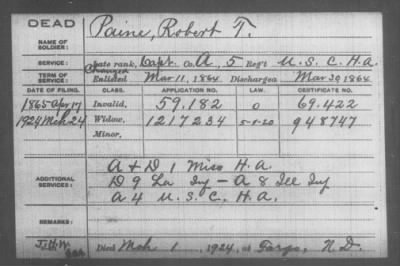 DEAD
NAME OF SOLDIER: Paine, Robert T.
SERVICE: Late rank, Capt. Co. A, 5 Reg't U. S. C. H. A.
TERM OF SERVICE: Enlisted Mar 11, 1864 Discharged Mar 30, 1864
DATE OF FILING. CLASS. APPLICATION NO. LAW. CERTIFICATE NO.
1865 Apr 17 Invalid, 59.182 0 69.422
1924 Mch 24 Widow, 1217234 5-1-20 948747
Minor,
A + D 1 Miss H. A.
ADDITIONAL SERVICES: D 9 La Inf - A 8 Ill Inf
A 4 U. S. C. H. A.
REMARKS:
Died Mch 1, 1924, at Fargo, N. D.